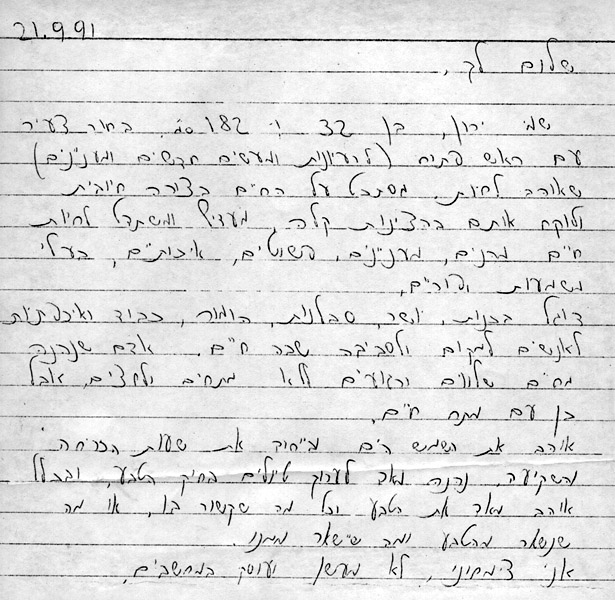 21.9.91
שלום לך,
שמי ירון, בן 32 ו 182 סמ. בחור צעיר
עם ראש פתוח (לרעיונות ומעשים חדשים ומענינים)
שאוהב לחיות. מסתכל על החיים בצורה חיובית
ולוקח אותם ברצינות קלה, מעדיף ומשתדל לחיות
חיים מהנים, מענינים, פשוטים, איכותיים, בעלי
משמעות ופוריים.
דוגל בכנות, יושר, סבלנות, הומור, כבוד ואיכפתיות
לאנשים למקום ולסביבה שבה חיים. אדם שנהנה
מחיים שלווים ורגועים ללא מתחים ולחצים, אבל
כן עם מתח חיים.
אוהב את השמש הים מייחוד את שעות הזריחה
והשקיעה. נהנה מאד לערוך טיולים בחיק הטבע, ובכלל
אוהב מאד את הטבע וכל מה שקשור בו, או מה
שנשאר מהטבע ומה שישאר ממנו.
אני צימחוני, לא מעשן ועוסק במחשבים.